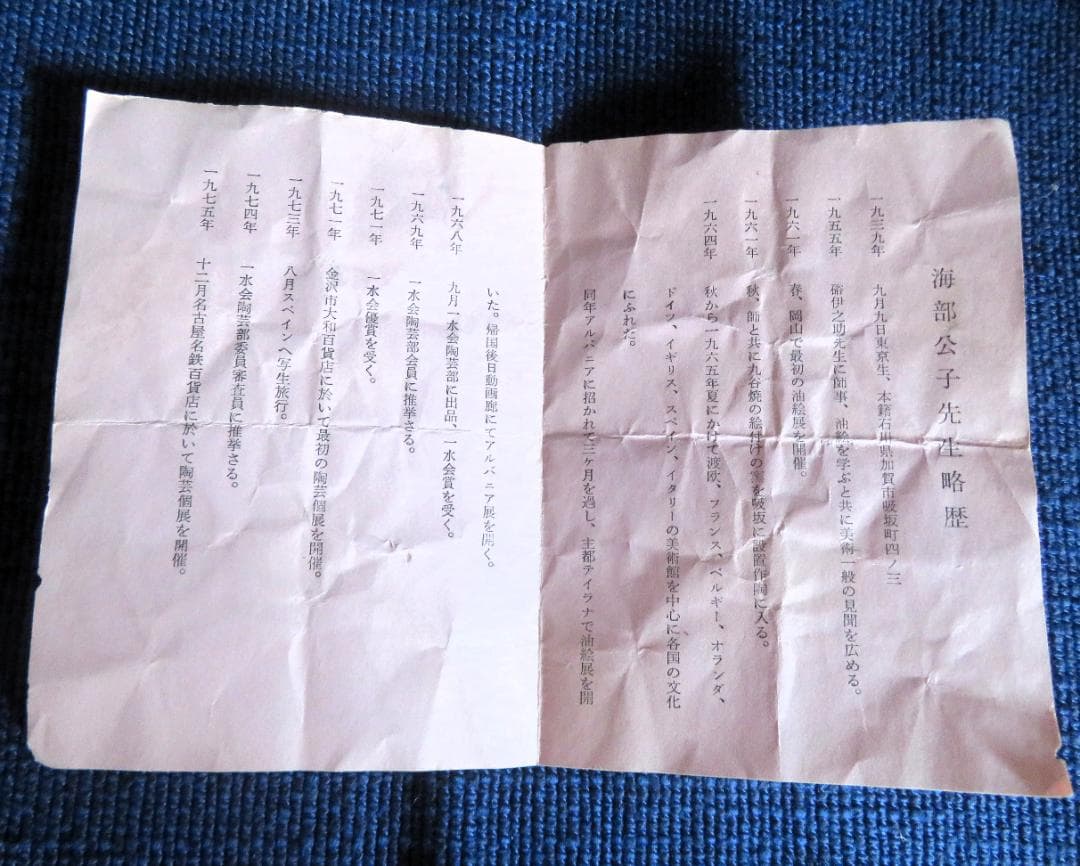 海部公子先生略歴
一九三九年 九月九日東京生、本籍石川県加賀市吸坂町四ノ三
一九五五年 硲伊之助先生に師事、油絵を学ぶと共に美術一般の見聞を広める。
一九六一年 春、岡山で最初の油絵展を開催。
一九六一年 秋、師と共に九谷焼の絵付けの窯を吸坂に設置作陶に入る。
一九六四年 秋から一九六五年夏にかけて渡欧、フランス、ベルギー、オランダ、
ドイツ、イギリス、スペイン、イタリーの美術館を中心に各国の文化
にふれた。
同年アルバニアに招かれて三ヶ月を過し、主都テイラナで油絵展を開
いた。帰国後日動画廊にてアルバニア展を開く。
一九六八年 九月一水会陶芸部に出品、一水会賞を受く。
一九六九年 一水会陶芸部会員に推挙さる。
一九七一年 一水会優賞を受く。
一九七一年 金沢市大和百貨店に於いて最初の陶芸個展を開催。
一九七三年 八月スペインへ写生旅行。
一九七四年 一水会陶芸部委員審査員に推挙さる。
一九七五年 十二月名古屋名鉄百貨店に於いて陶芸個展を開催。